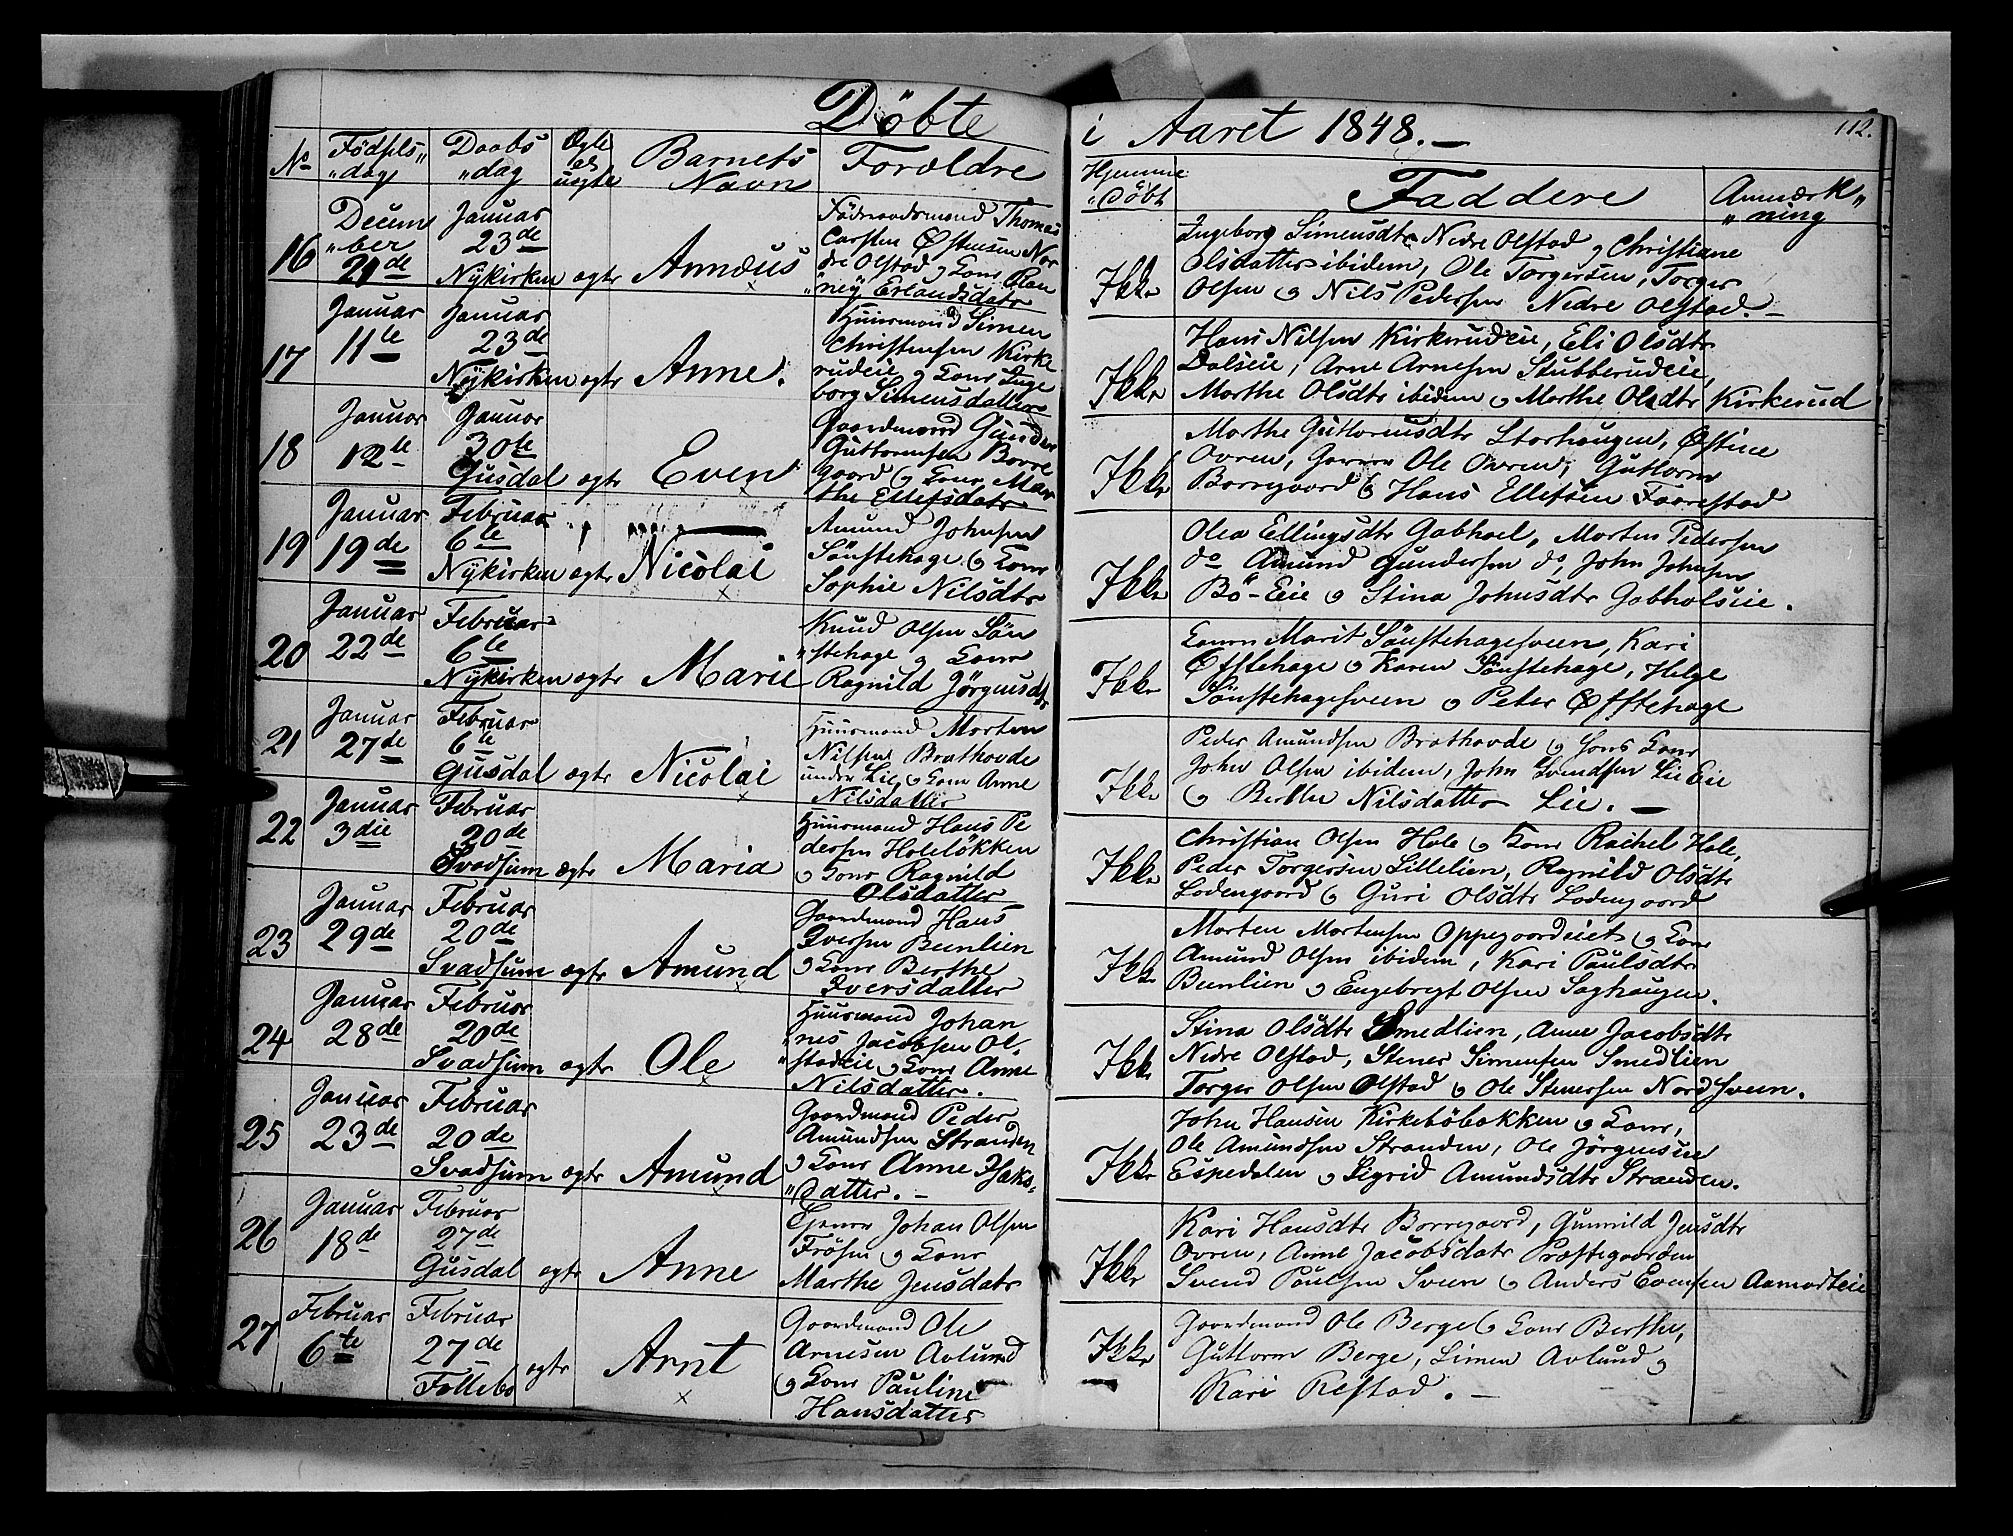 Döbte
i Aaret 1848.
112.
No
Födsels„
„dag
Daabs
„dag
Ægte
el
uegte
Barnets
Navn
Forældre
Hjemme
„döbt
Faddere
Anmærk„
„ning
16
Decem
„ber
21de
Januar
23de
Nykirken
ægte
Annæus
Thomas
Carsten Østensen Nor
dre Olstad og Kone Ron
„ney Erlandsdatr
Ikke
Ingeborg Simensdtr Nedre Olstad og Christiane
Olsdatter ibidem, Ole Torgersen, Torger
Olsen og Nils Pedersen Nedre Olstad.
17
Januar
11te
Januar
23de
Nykirken
ægte
Anne.
Huusmand Simen
Christensen Kirke
rudeie og Kone Inge
borg Simensdatter
Ikke
Hans Nilsen Kirkerudeie, Eli Olsdtr
Dalseie, Arne Arnesen Stubberudeie,
Marthe Olsdtr ibidem og Marthe Olsdtr Kirkerud
18
Januar
12te
Januar
30te
Gusdal
ægte
Even
Gaardmand Gunder
Guttormsen Borre
gaard og Kone Mar
the Ellefsdatr
Ikke
Marthe Guttormsdtr Storhaugen, Østine
Ovren, Ole Ovren, Guttorm
Borregaard og Hans Ellefsen Faarestad
19
Januar
19de
Februar
6te
Nykirken
ægte
Nicolai
Amund Johnsen
Sönstehage og Kone
Sophie Nilsdtr
Ikke
Olea Ellingsdtr Gabhoel, Morten Pedersen
do Amund Gundersen do, John Johnsen
Bö-Eie og Stina Johnsdtr Gabholseie.
20
Januar
22de
Februar
6te
Nykirken
ægte
Marie
Knud Olsen Sön
„stehage og Kone
Ragnild Jörgensdtr
Ikke
Konen Marit Sönstehagesveen, Kari
Øfstehage og Karen Sönstehage, Helge
Sönstehagesveen og Peter Øfstehage
21
Januar
27de
Februar
6te
Gusdal
ægte
Nicolai
Huusmand Morten
Nilsen Brathovde
under Lie og Kone Anne
Nilsdatter
Ikke
Peder Amundsen Brathovde og hans Kone
John Olsen ibidem, John Svendsen Lie Eie
og Berthe Nilsdatter Lie.
22
Januar
3die
Februar
20de
Svadsum
ægte
Maria
Huusmand Hans Pe
dersen Holelökken
og Kone Ragnild
Olsdatter
Ikke
Christian Olsen Hole og Kone Rachel Hole,
Peder Torgersen Lillelien, Ragnild Olsdtr
Lodengaard og Guri Olsdtr Lodengaard
23
Januar
29de
Februar
20de
Svadsum
ægte
Amund
Gaardmand Hans
Iversen Bunlien
og Kone Berthe
Iversdatter
Ikke
Morten Mortensen Oppegaardeiet og Kone
Amund Olsen ibidem, Kari Paulsdtr
Bunlien og Engebregt Olsen Saghaugen.
24
Januar
28de
Februar
20de
Svadsum
ægte
Ole
Huusmand Johan
„nes Jacobsen Ol„
„stadeie og Kone Anne
Nilsdatter.
Ikke
Stina Olsdtr Smedlien, Anne Jacobsdtr
Nedre Olstad, Stener Simensen Smedlien
Torger Olsen Olstad og Ole Stenersen Nordsveen.
25
Januar
23de
Februar
20de
Svadsum
ægte
Amund
Gaardmand Peder
Amundsen Stranden
og Kone Anne Isaks„
„datter.
Ikke
John Hansen Kirkeböbakken og Kone,
Ole Amundsen Stranden, Ole Jörgensen
Espedalen og Sigrid Amundsdtr Stranden.
26
Januar
18de
Februar
27de
Gusdal
ægte
Anne
Johan Olsen
Frösen og Kone
Marthe Jensdatr
Ikke
Kari Hansdtr Borregaard, Gunnild Jensdtr
Ovren, Anne Jacobsdatr Præstegaarden
Svend Paulsen Sveen og Anders Evensen Aamodteie
27
Februar
6te
Februar
27de
Follebo
ægte
Arnt
Gaardmand Ole
Arnesen Avlund
og Kone Pauline
Hansdatter
Ikke
Gaardmand Ole Berge og Kone Berthe,
Guttorm Berge, Simen Avlund og
Kari Restad.